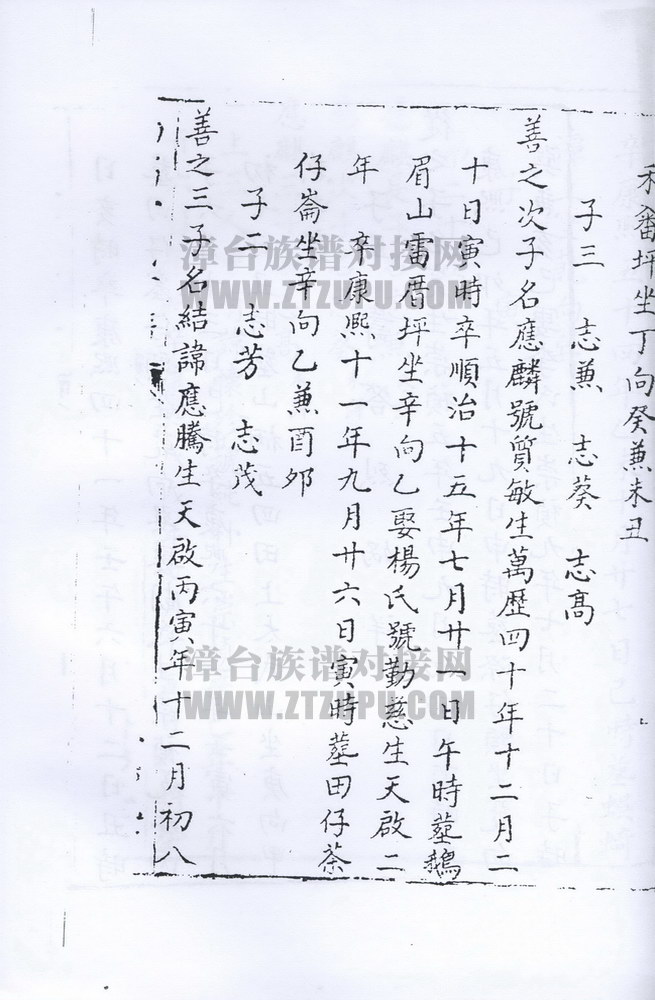 禾番坪坐丁向癸兼未丑
子三 志兼 志葵 志高
善之次子名應麟號質敏生萬歷四十年十二月二
十日寅時卒順治十五年七月廿一日午時塟鵝
眉山雷厝坪坐辛向乙娶楊氏號勤慈生天啟二
年 卒康熙十一年九月廿六日寅時塟田仔荼
仔崙坐辛向乙兼酉夘
子二 志芳 志茂
善之三子名結諱應騰生天啟丙寅年十二月初八
漳台族谱对接网
WWW.ZTZUPU.COM
漳台族谱对接网
WWW.ZTZUPU.COM